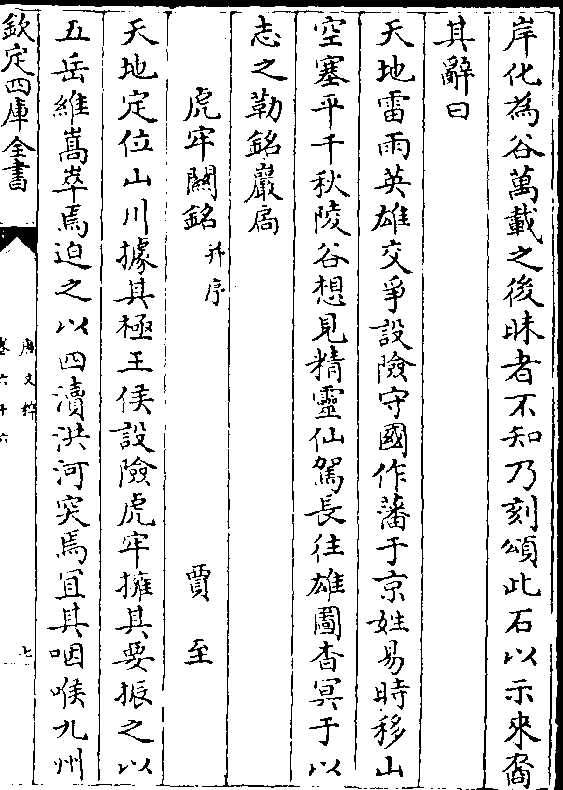 岸化為谷萬載之後昧者不知乃刻頌此石以示來裔
其辭曰
天地雷雨英雄交爭設險守國作藩于京姓易時移山
空塞平千秋陵谷想見精靈仙駕長往雄圖杳冥于以
志之勒銘巖扃
虎牢關銘并序
賈至
天地定位山川據其極王侯設險虎牢擁其要振之以
五岳維嵩萃焉迫之以四瀆洪河突焉宜其咽喉九州
欽定四庫全書
唐文粹
卷六十六
七